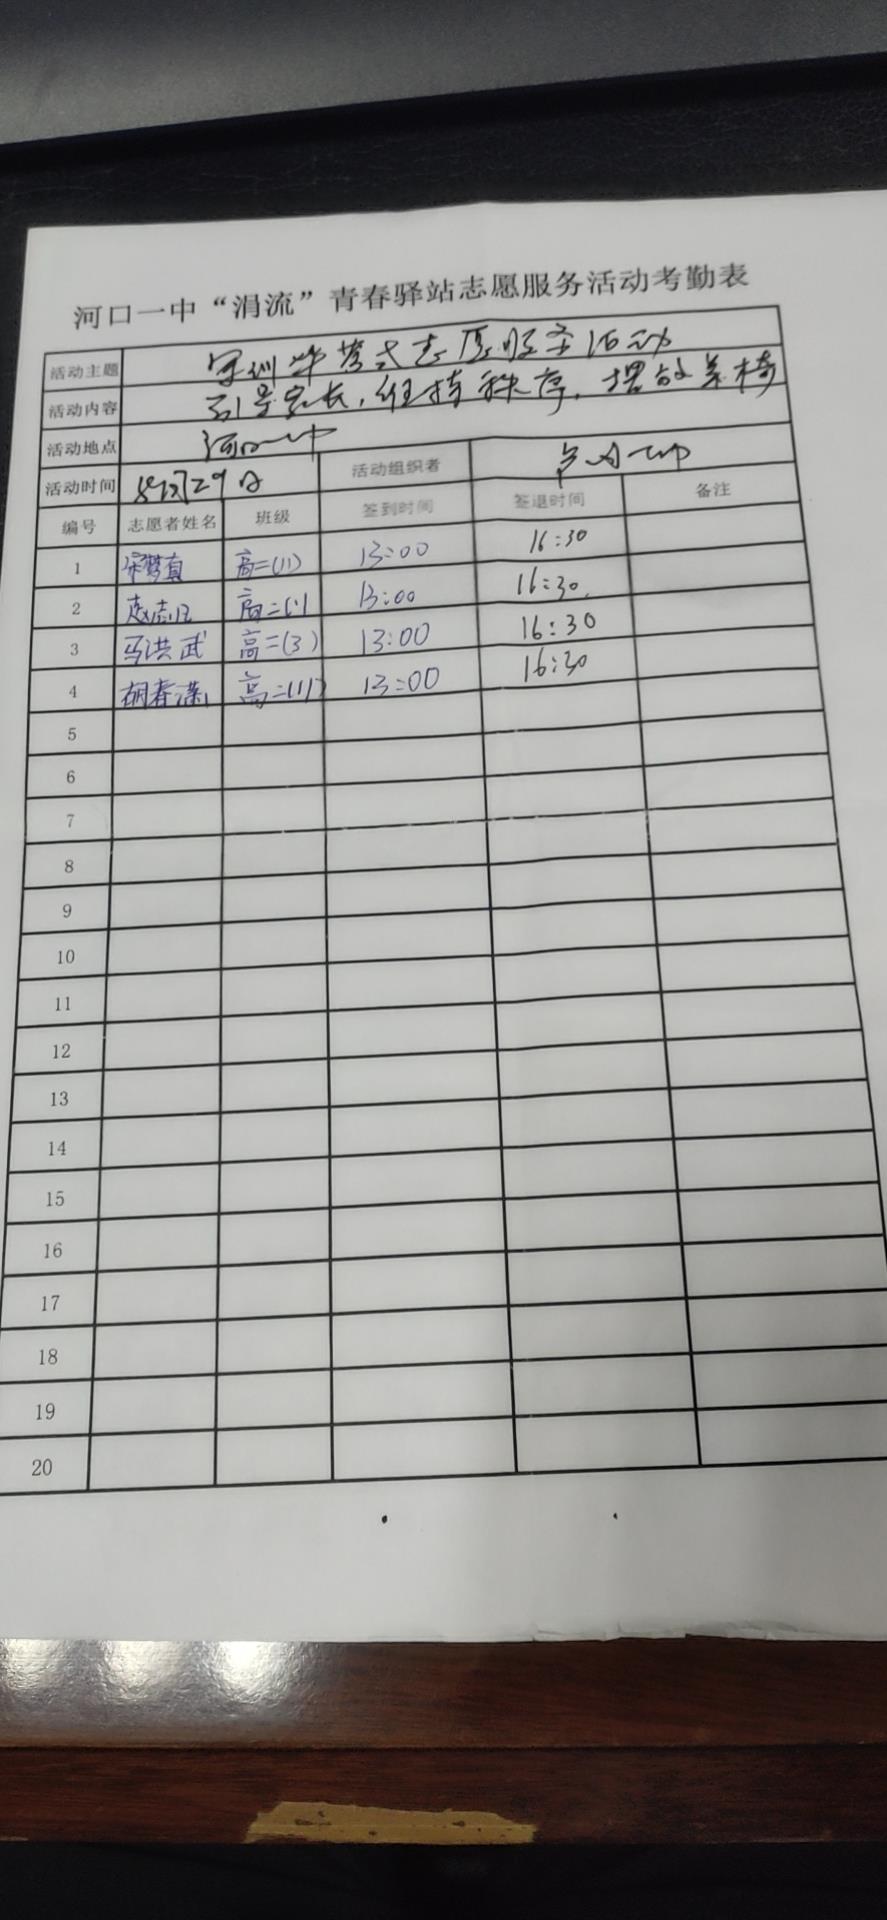 河口一中“涓流”青春驿站志愿服务活动考勤表
活动主题 军训毕营式志愿服务活动
活动内容 引导家长,维持秩序,摆放桌椅
活动地点 河口一中
活动时间 8月29日 活动组织者
编号 志愿者姓名 班级 签到时间 签退时间 备注
1 宋梦真 高二(11) 13:00 16:30
2 高二(1) 13:00 16:30
3 马洪武 高二(3) 13:00 16:30
4 胡春潇 高二(11) 13:00 16:30
5
6
7
8
9
10
11
12
13
14
15
16
17
18
19
20